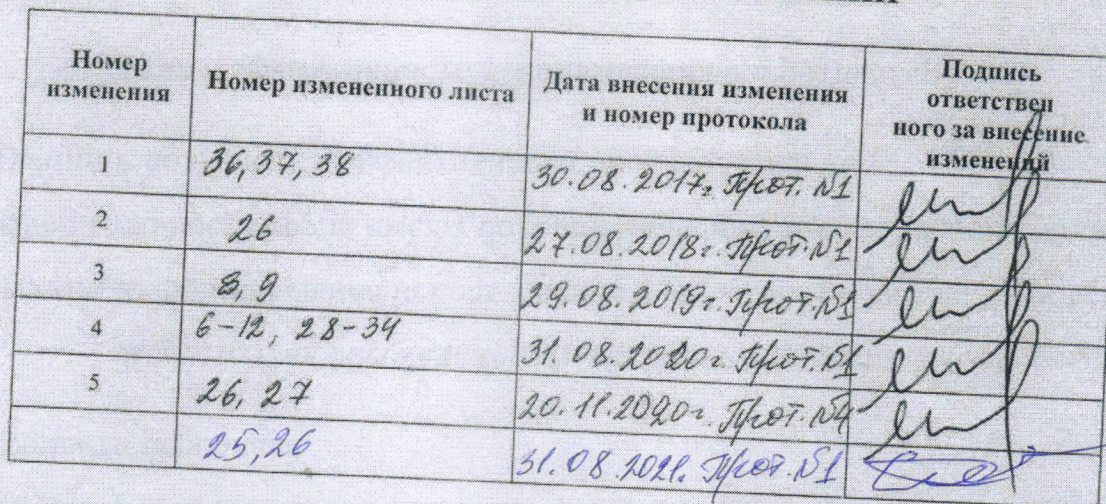 Номер
изменения
Номер измененного листа
Дата внесения изменения
и номер протокола
Подпись
ответствен
ного за внесение
изменений
1 36, 37, 38 30.08.2017г. Прот. №1
2 26 27.08.2018г. Прот. №1
3 8, 9 29.08.2019г. Прот. №1
4 6-12, 28-34 31.08.2020г. Прот. №1
5 26, 27 20.11.2020г. Прот. №4
25, 26 31.08.2021г. Прот. №1